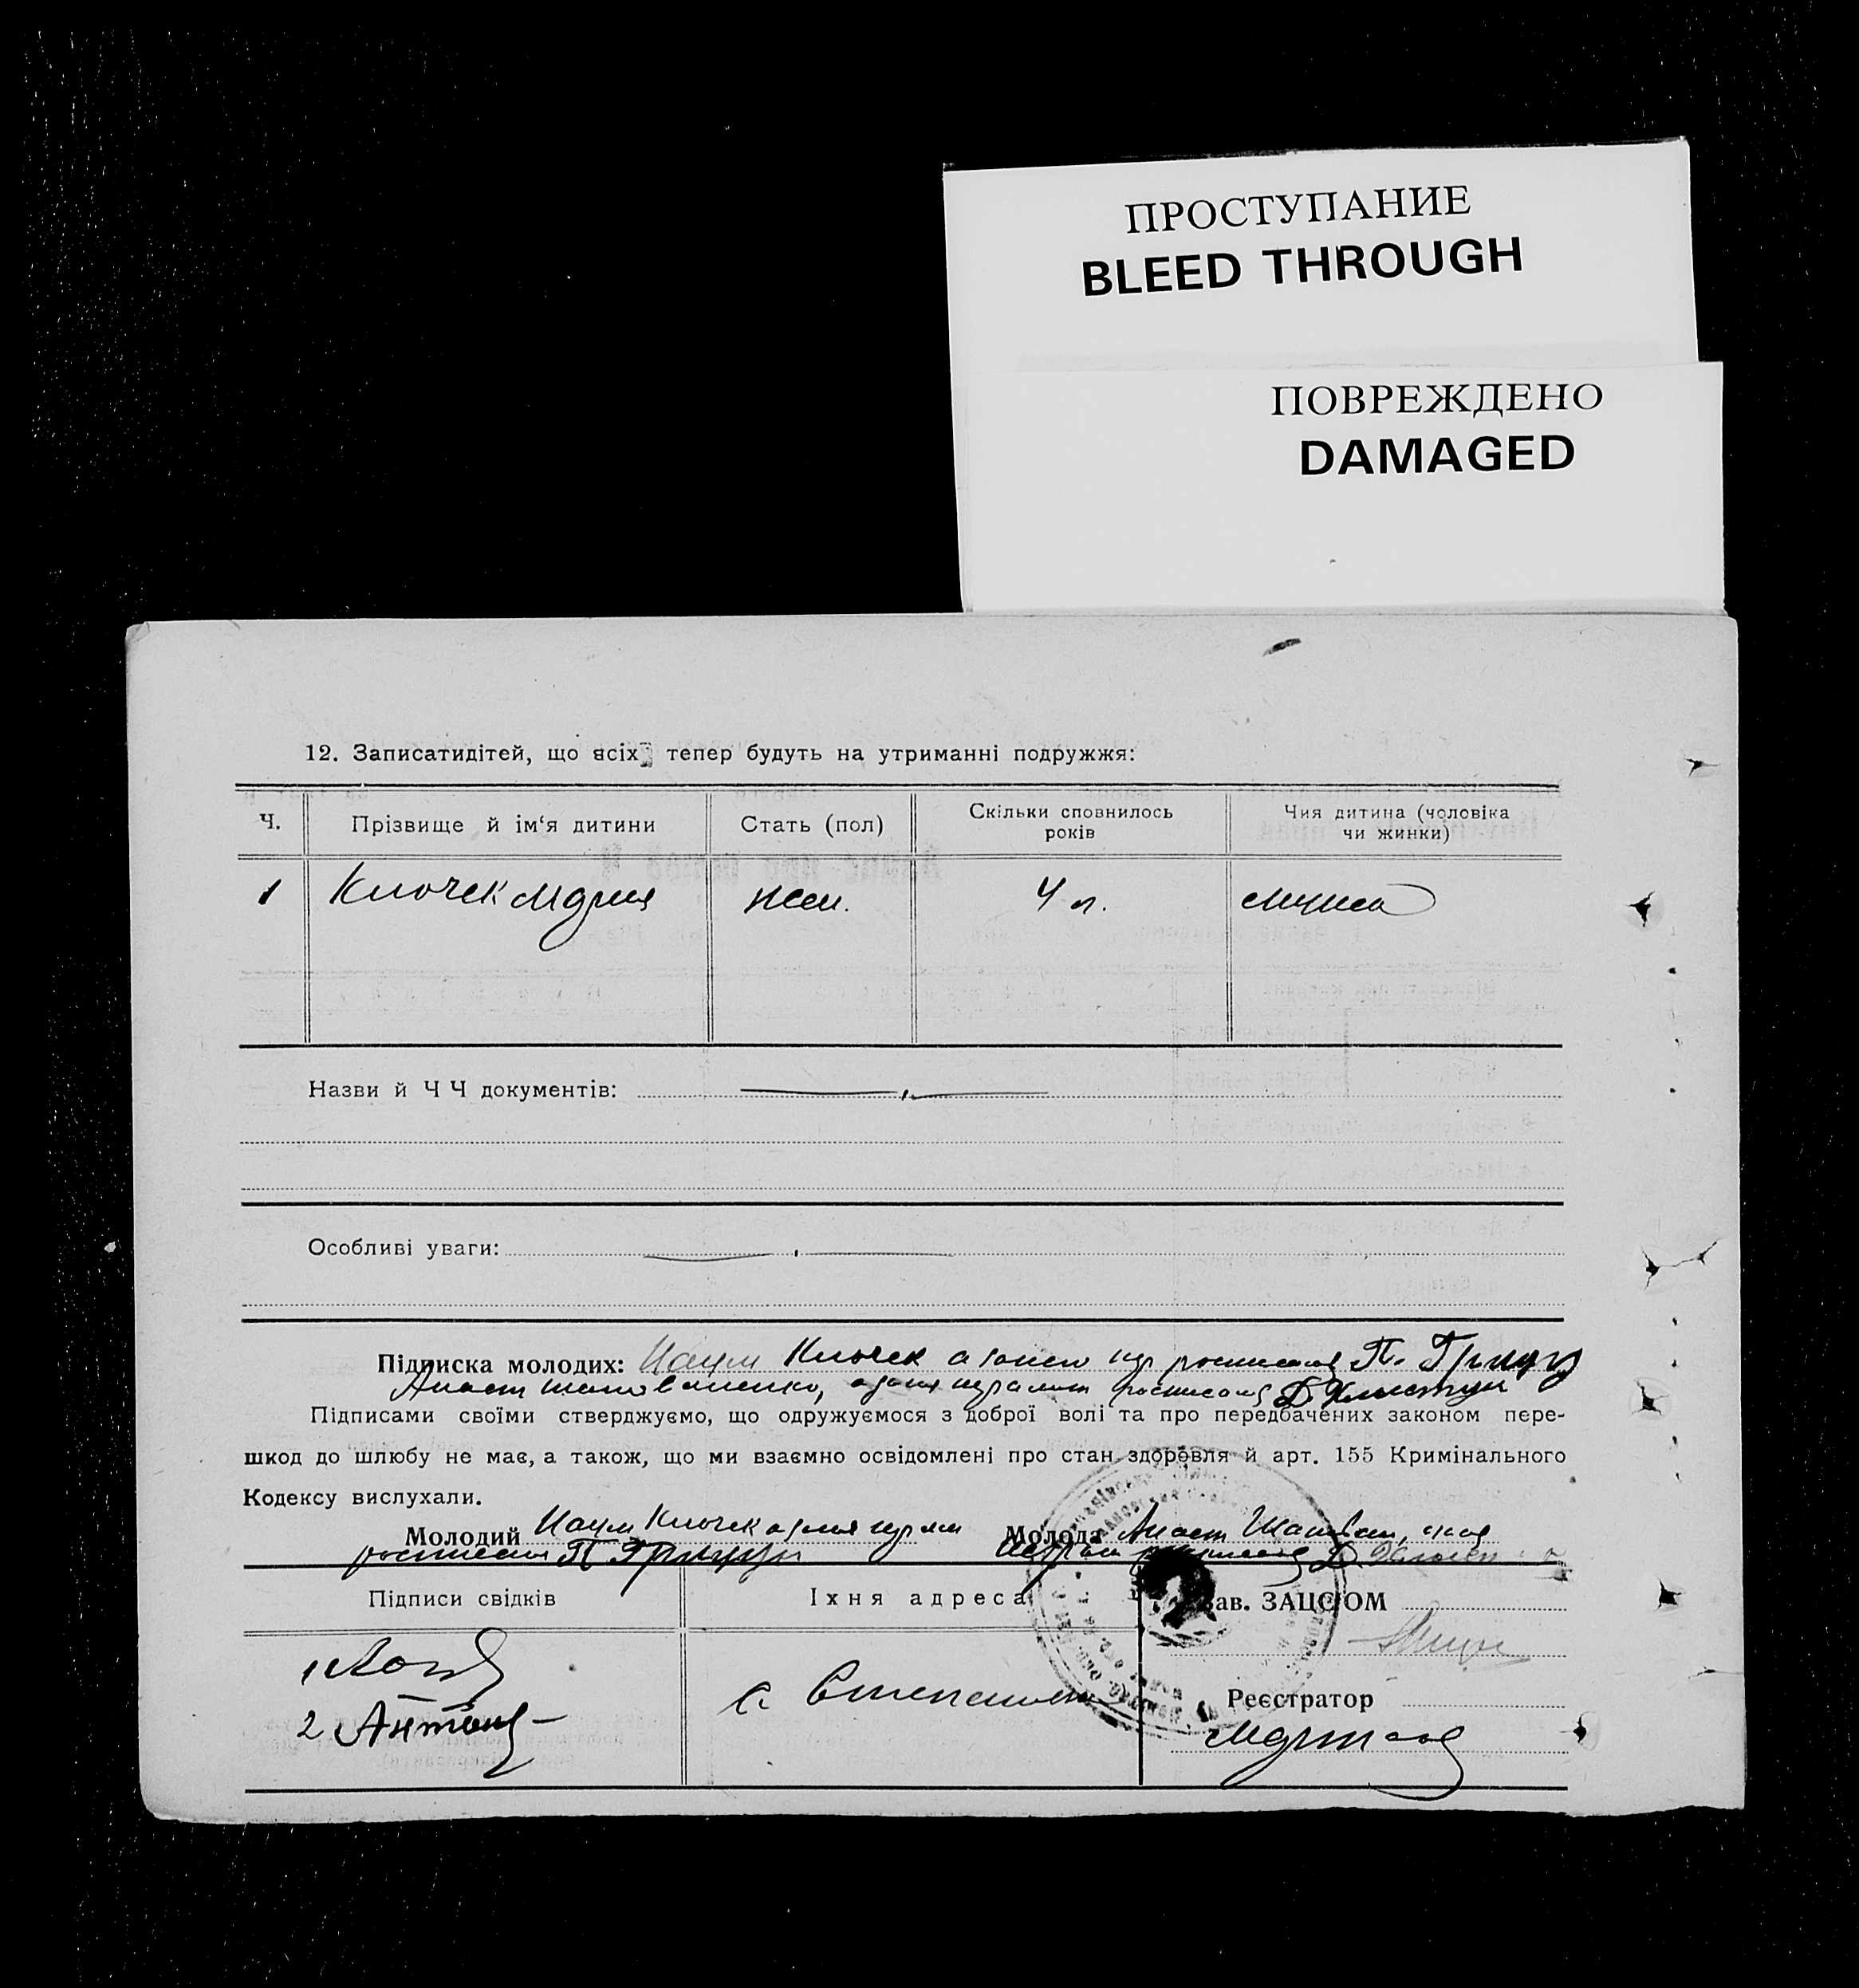 ПРОСТУПАНИЕ
BLEED THROUGH
ПОВРЕЖДЕНО
DAMAGED
12. Записатидітей, що всіх тепер будуть на утриманні подружжя:
Ч. Прізвище й ім‘я дитини Стать (пол) Скільки сповнилось років Чия дитина (чоловіка чи жинки)
1 Ключек Мария жен. 4 л. мужа
Назви й Ч Ч документів:
Особливі уваги:
Підписка молодих: Наум Ключек а за него росписался П. Грицу
Анаст Шаповаленко, а за неграмотн росписался Д. Хлистун
Підписами своїми стверджуємо, що одружуємося з доброї волі та про передбачених законом пере-
шкод до шлюбу не має, а також, що ми взаємно освідомлені про стан здоровля й арт. 155 Кримінального
Кодексу вислухали.
Молодий Наум Ключек Молода Анаст
П
Д.
Підписи свідків Їхня адреса Зав. ЗАЦС‘ОМ
1
с. Реєстратор
2